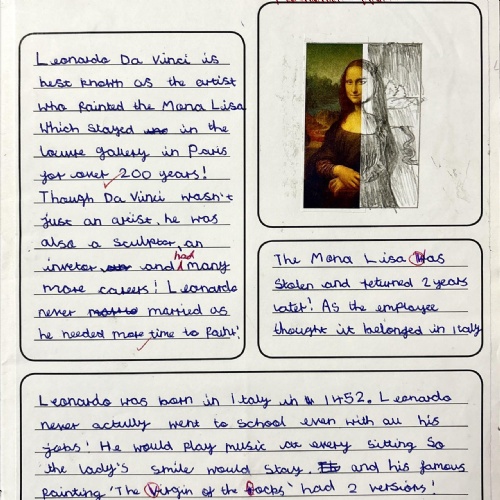 Leonardo Da Vinci is
best known as the artist
who painted the Mona Lisa
Which stayed in the
louvre gallery in Paris
for over 200 years!
Though Da Vinci wasn't
just an artist, he was
also a sculptor, an
inveter and had many
more careers! Leonardo
never married as
he needed more time to Paint!
The Mona Lisa was
Stolen and returned 2 years
later! As the employee
thought it belonged in Italy
Leonardo was born in Italy in 1452. Leonardo
never actully went to School even with all his
jobs! He would play music at every sitting So
the lady's smile would stay. and his famous
painting 'The Virgin of the Rocks' had 2 versions!